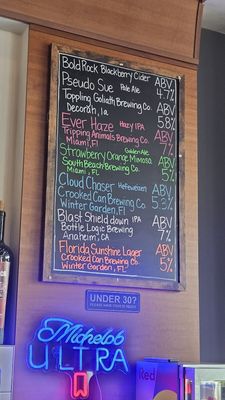 Bold Rock Blackberry Cider
ABV
4.7%
Pseudo Sue Pale Ale
Toppling Goliath Brewing Co.
Decorah, Ia
ABV
5.8%
Ever Haze Hazy IPA
Tripping Animals Brewing Co.
Miami, Fl
ABV
7%
Strawberry Orange Mimosa
Golden Ale
South Beach Brewing Co.
Miami, Fl
ABV
5%
Cloud Chaser Hefeweizen
Crooked Can Brewing Co.
Winter Garden, Fl
ABV
5.3%
Blast Shield down IPA
Bottle Logic Brewing
Anaheim, CA
ABV
7%
Florida Sunshine Lager
Crooked Can Brewing Co.
Winter Garden, FL
ABV
5%
UNDER 30?
Michelob
ULTRA
Red